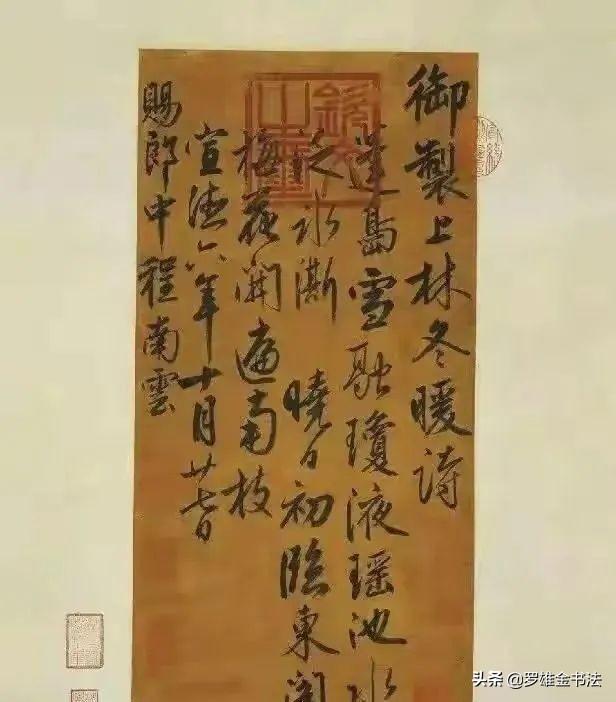 御製上林冬暖詩
蓬島雪融瓊液瑶池水
泛冰澌 曉日初臨東閣
梅花開遍南枝
宣德六年十月廿七日
賜郎中程南雲
头条 @罗雄金书法